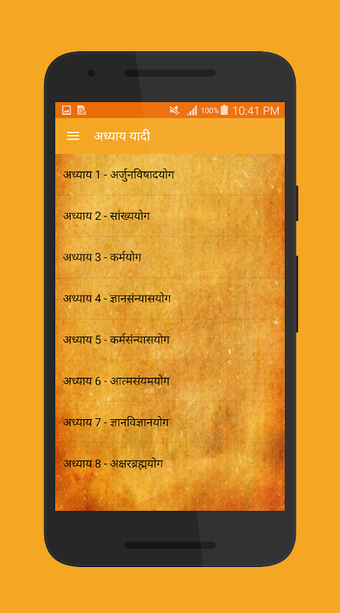 100% 10:41 PM
अध्याय यादी
अध्याय 1 - अर्जुनविषादयोग
अध्याय 2 - सांख्ययोग
अध्याय 3 - कर्मयोग
अध्याय 4 - ज्ञानसंन्यासयोग
अध्याय 5 - कर्मसंन्यासयोग
अध्याय 6 - आत्मसंयमयोग
अध्याय 7 - ज्ञानविज्ञानयोग
अध्याय 8 - अक्षरब्रह्मयोग